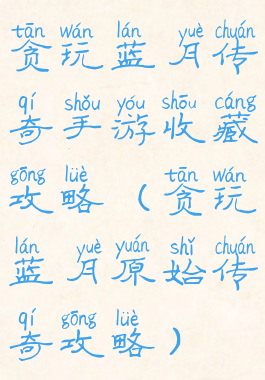 tān wán lán yuè chuán
贪玩蓝月传
qí shǒu yóu shōu cáng
奇手游收藏
gōng lüè tān wán
攻略（贪玩
lán yuè yuán shǐ chuán
蓝月原始传
qí gōng lüè
奇攻略）